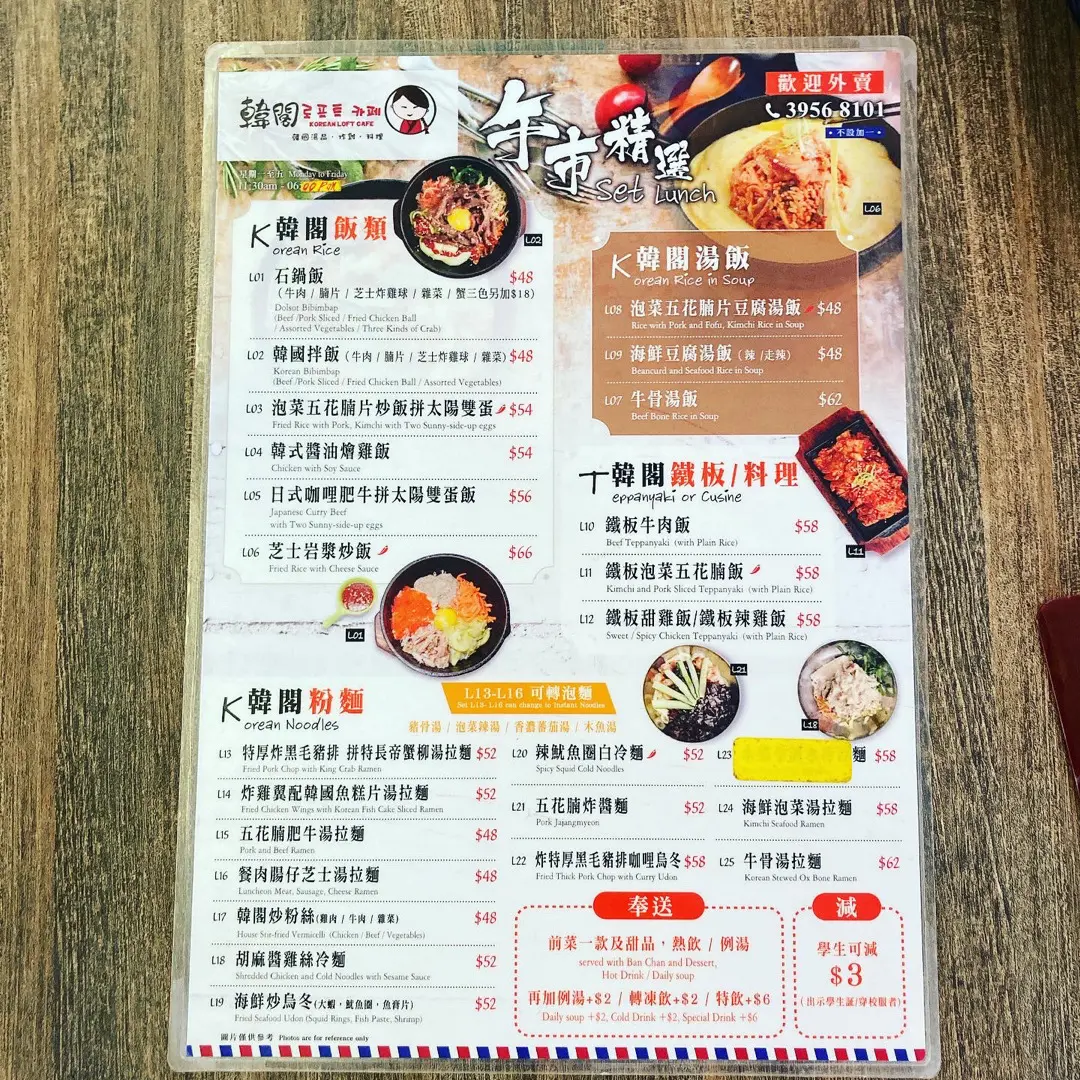 韓閣 로프트 카페
KOREAN LOFT CAFE
韓國湯品 · 炸雞 · 料理
星期一至五 Monday to Friday
11:30am - 06:00 PM
午市精選
Set Lunch
歡迎外賣
3956 8101
• 不設加一 •
L06
L02
韓閣飯類
Korean Rice
L01 石鍋飯 $48
(牛肉 / 腩片 / 芝士炸雞球 / 雜菜 / 蟹三色另加$18)
Dolsot Bibimbap
(Beef /Pork Sliced / Fried Chicken Ball
/ Assorted Vegetables / Three Kinds of Crab)
L02 韓國拌飯 (牛肉 / 腩片 / 芝士炸雞球 / 雜菜) $48
Korean Bibimbap
(Beef /Pork Sliced / Fried Chicken Ball / Assorted Vegetables)
L03 泡菜五花腩片炒飯拼太陽雙蛋 $54
Fried Rice with Pork, Kimchi with Two Sunny-side-up eggs
L04 韓式醬油燴雞飯 $54
Chicken with Soy Sauce
L05 日式咖哩肥牛拼太陽雙蛋飯 $56
Japanese Curry Beef
with Two Sunny-side-up eggs
L06 芝士岩漿炒飯 $66
Fried Rice with Cheese Sauce
L01
韓閣湯飯
Korean Rice in Soup
L08 泡菜五花腩片豆腐湯飯 $48
Rice with Pork and Fofu, Kimchi Rice in Soup
L09 海鮮豆腐湯飯 (辣 /走辣) $48
Beancurd and Seafood Rice in Soup
L07 牛骨湯飯 $62
Beef Bone Rice in Soup
韓閣鐵板/料理
Teppanyaki or Cusine
L10 鐵板牛肉飯 $58
Beef Teppanyaki (with Plain Rice)
L11
L11 鐵板泡菜五花腩飯 $58
Kimchi and Pork Sliced Teppanyaki (with Plain Rice)
L12 鐵板甜雞飯/鐵板辣雞飯 $58
Sweet / Spicy Chicken Teppanyaki (with Plain Rice)
L21
L18
韓閣粉麵
Korean Noodles
L13-L16 可轉泡麵
Set L13- L16 can change to Instant Noodles
豬骨湯 / 泡菜辣湯 / 香濃蕃茄湯 / 木魚湯
L13 特厚炸黑毛豬排 拼特長帝蟹柳湯拉麵 $52
Fried Pork Chop with King Crab Ramen
L14 炸雞翼配韓國魚糕片湯拉麵 $52
Fried Chicken Wings with Korean Fish Cake Sliced Ramen
L15 五花腩肥牛湯拉麵 $48
Pork and Beef Ramen
L16 餐肉腸仔芝士湯拉麵 $48
Luncheon Meat, Sausage, Cheese Ramen
L17 韓閣炒粉絲(雞肉 / 牛肉 / 雜菜) $48
House Stir-fried Vermicelli (Chicken / Beef / Vegetables)
L18 胡麻醬雞絲冷麵 $52
Shredded Chicken and Cold Noodles with Sesame Sauce
L19 海鮮炒烏冬(大蝦，魷魚圈，魚膏片) $52
Fried Seafood Udon (Squid Rings, Fish Paste, Shrimp)
L20 辣魷魚圈白冷麵 $52
Spicy Squid Cold Noodles
L21 五花腩炸醬麵 $52
Pork Jajangmyeon
L22 炸特厚黑毛豬排咖哩烏冬 $58
Fried Thick Pork Chop with Curry Udon
L23 麵 $58
L24 海鮮泡菜湯拉麵 $58
Kimchi Seafood Ramen
L25 牛骨湯拉麵 $62
Korean Stewed Ox Bone Ramen
奉送
前菜一款及甜品，熱飲 / 例湯
served with Ban Chan and Dessert,
Hot Drink / Daily soup
再加例湯+$2 / 轉凍飲+$2 / 特飲+$6
Daily soup +$2, Cold Drink +$2, Special Drink +$6
減
學生可減
$3
(出示學生証/穿校服者)
圖片僅供參考 Photos are for reference only